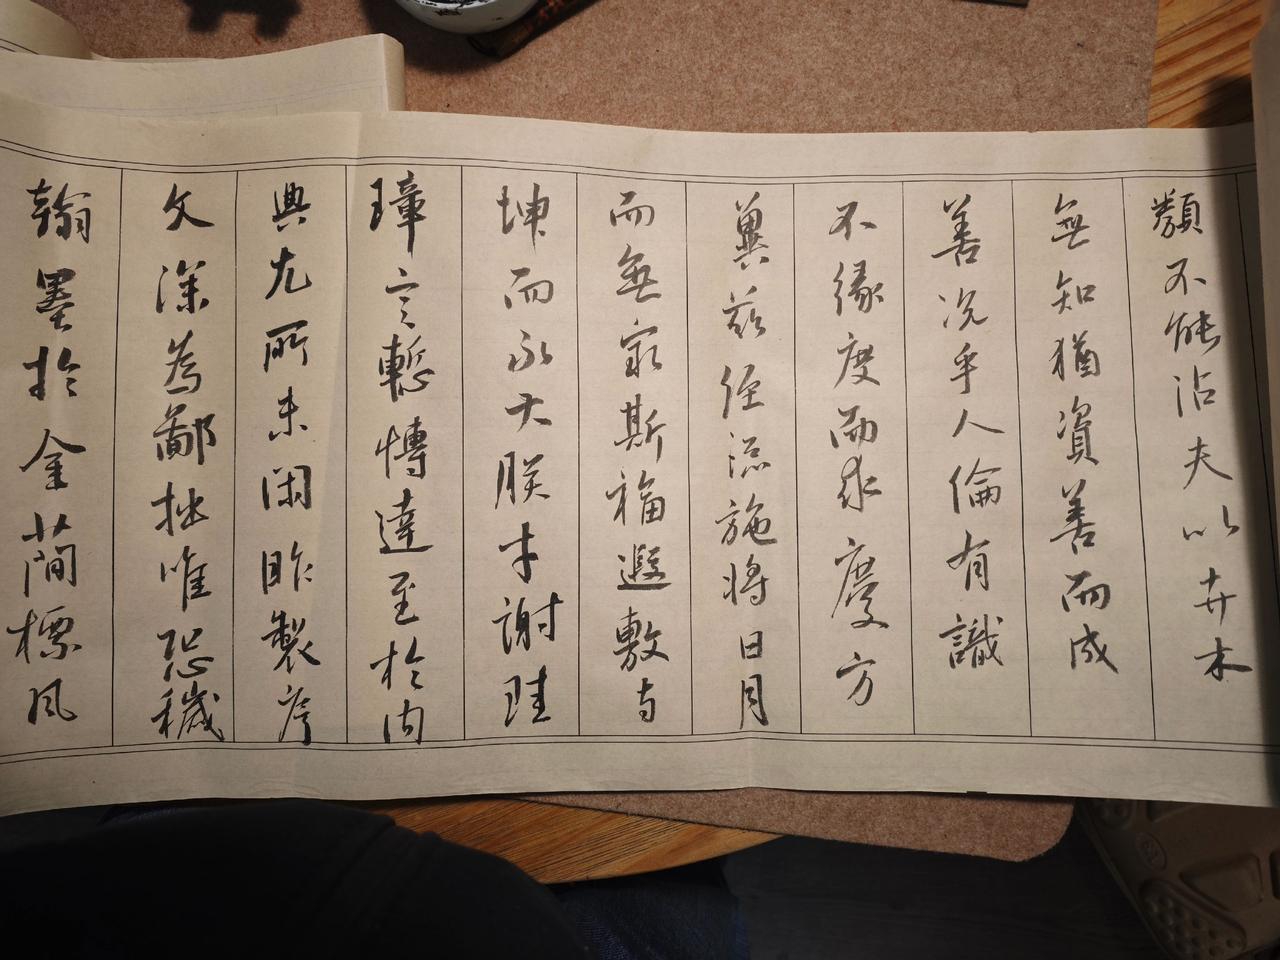 類不能沾夫以卉木
無知猶資善而成
善況乎人倫有識
不緣慶而求慶方
冀茲經流施將日月
而無窮斯福遐敷与
乾坤而永大朕才謝珪
璋言慙博達至於内
典尤所未閑昨製序
文深為鄙拙唯恐穢
翰墨於金蕳標風